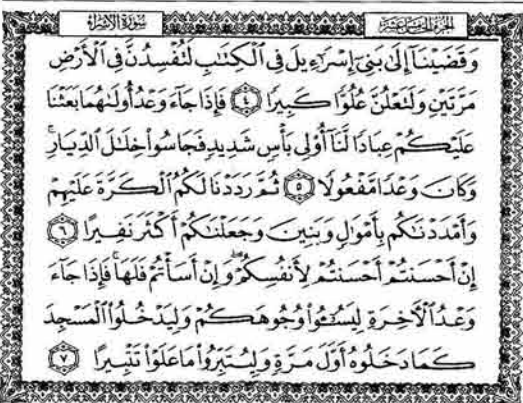 الجزء الخامس عشر
سورة الإسراء
وَقَضَيْنَآ إِلَىٰ بَنِىٓ إِسْرَٰٓءِيلَ فِى ٱلْكِتَٰبِ لَتُفْسِدُنَّ فِى ٱلْأَرْضِ
مَرَّتَيْنِ وَلَتَعْلُنَّ عُلُوًّا كَبِيرًا ٤ فَإِذَا جَآءَ وَعْدُ أُولَىٰهُمَا بَعَثْنَا
عَلَيْكُمْ عِبَادًا لَّنَآ أُو۟لِى بَأْسٍ شَدِيدٍ فَجَاسُوا۟ خِلَٰلَ ٱلدِّيَارِ ۚ
وَكَانَ وَعْدًا مَّفْعُولًا ٥ ثُمَّ رَدَدْنَا لَكُمُ ٱلْكَرَّةَ عَلَيْهِمْ
وَأَمْدَدْنَٰكُم بِأَمْوَٰلٍ وَبَنِينَ وَجَعَلْنَٰكُمْ أَكْثَرَ نَفِيرًا ٦
إِنْ أَحْسَنتُمْ أَحْسَنتُمْ لِأَنفُسِكُمْ ۖ وَإِنْ أَسَأْتُمْ فَلَهَا ۚ فَإِذَا جَآءَ
وَعْدُ ٱلْأَخِرَةِ لِيَسُۥٓـُٔوا۟ وُجُوهَكُمْ وَلِيَدْخُلُوا۟ ٱلْمَسْجِدَ
كَمَا دَخَلُوهُ أَوَّلَ مَرَّةٍ وَلِيُتَبِّرُوا۟ مَا عَلَوْا۟ تَتْبِيرًا ٧